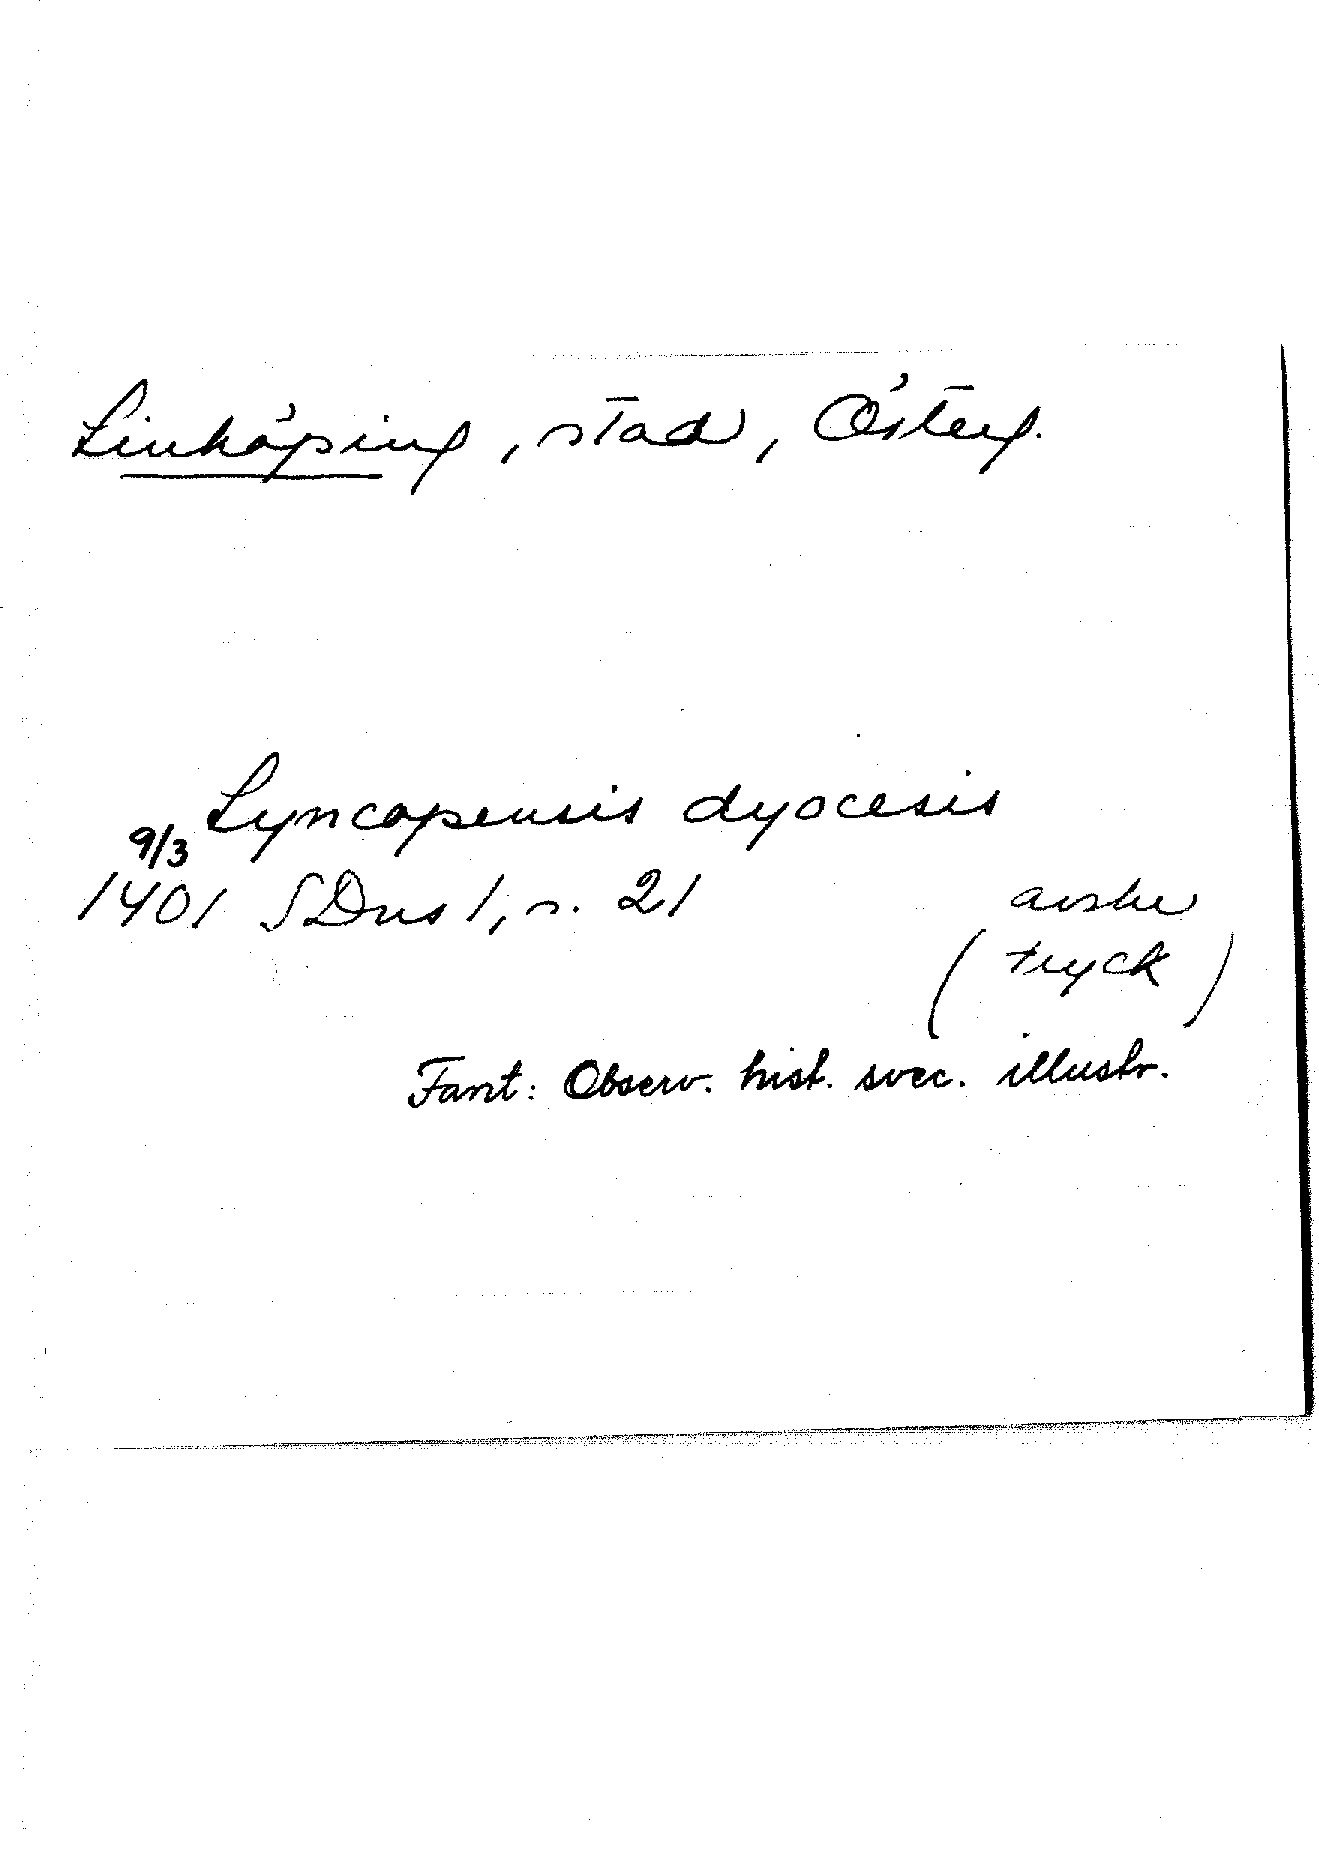 Linköping, stad, Österg.
Lyncopensis dyocesis
9/3
1401 SDns 1, s. 21
avskr
(tryck)
Fant: Observ. hist. svec. illustr.